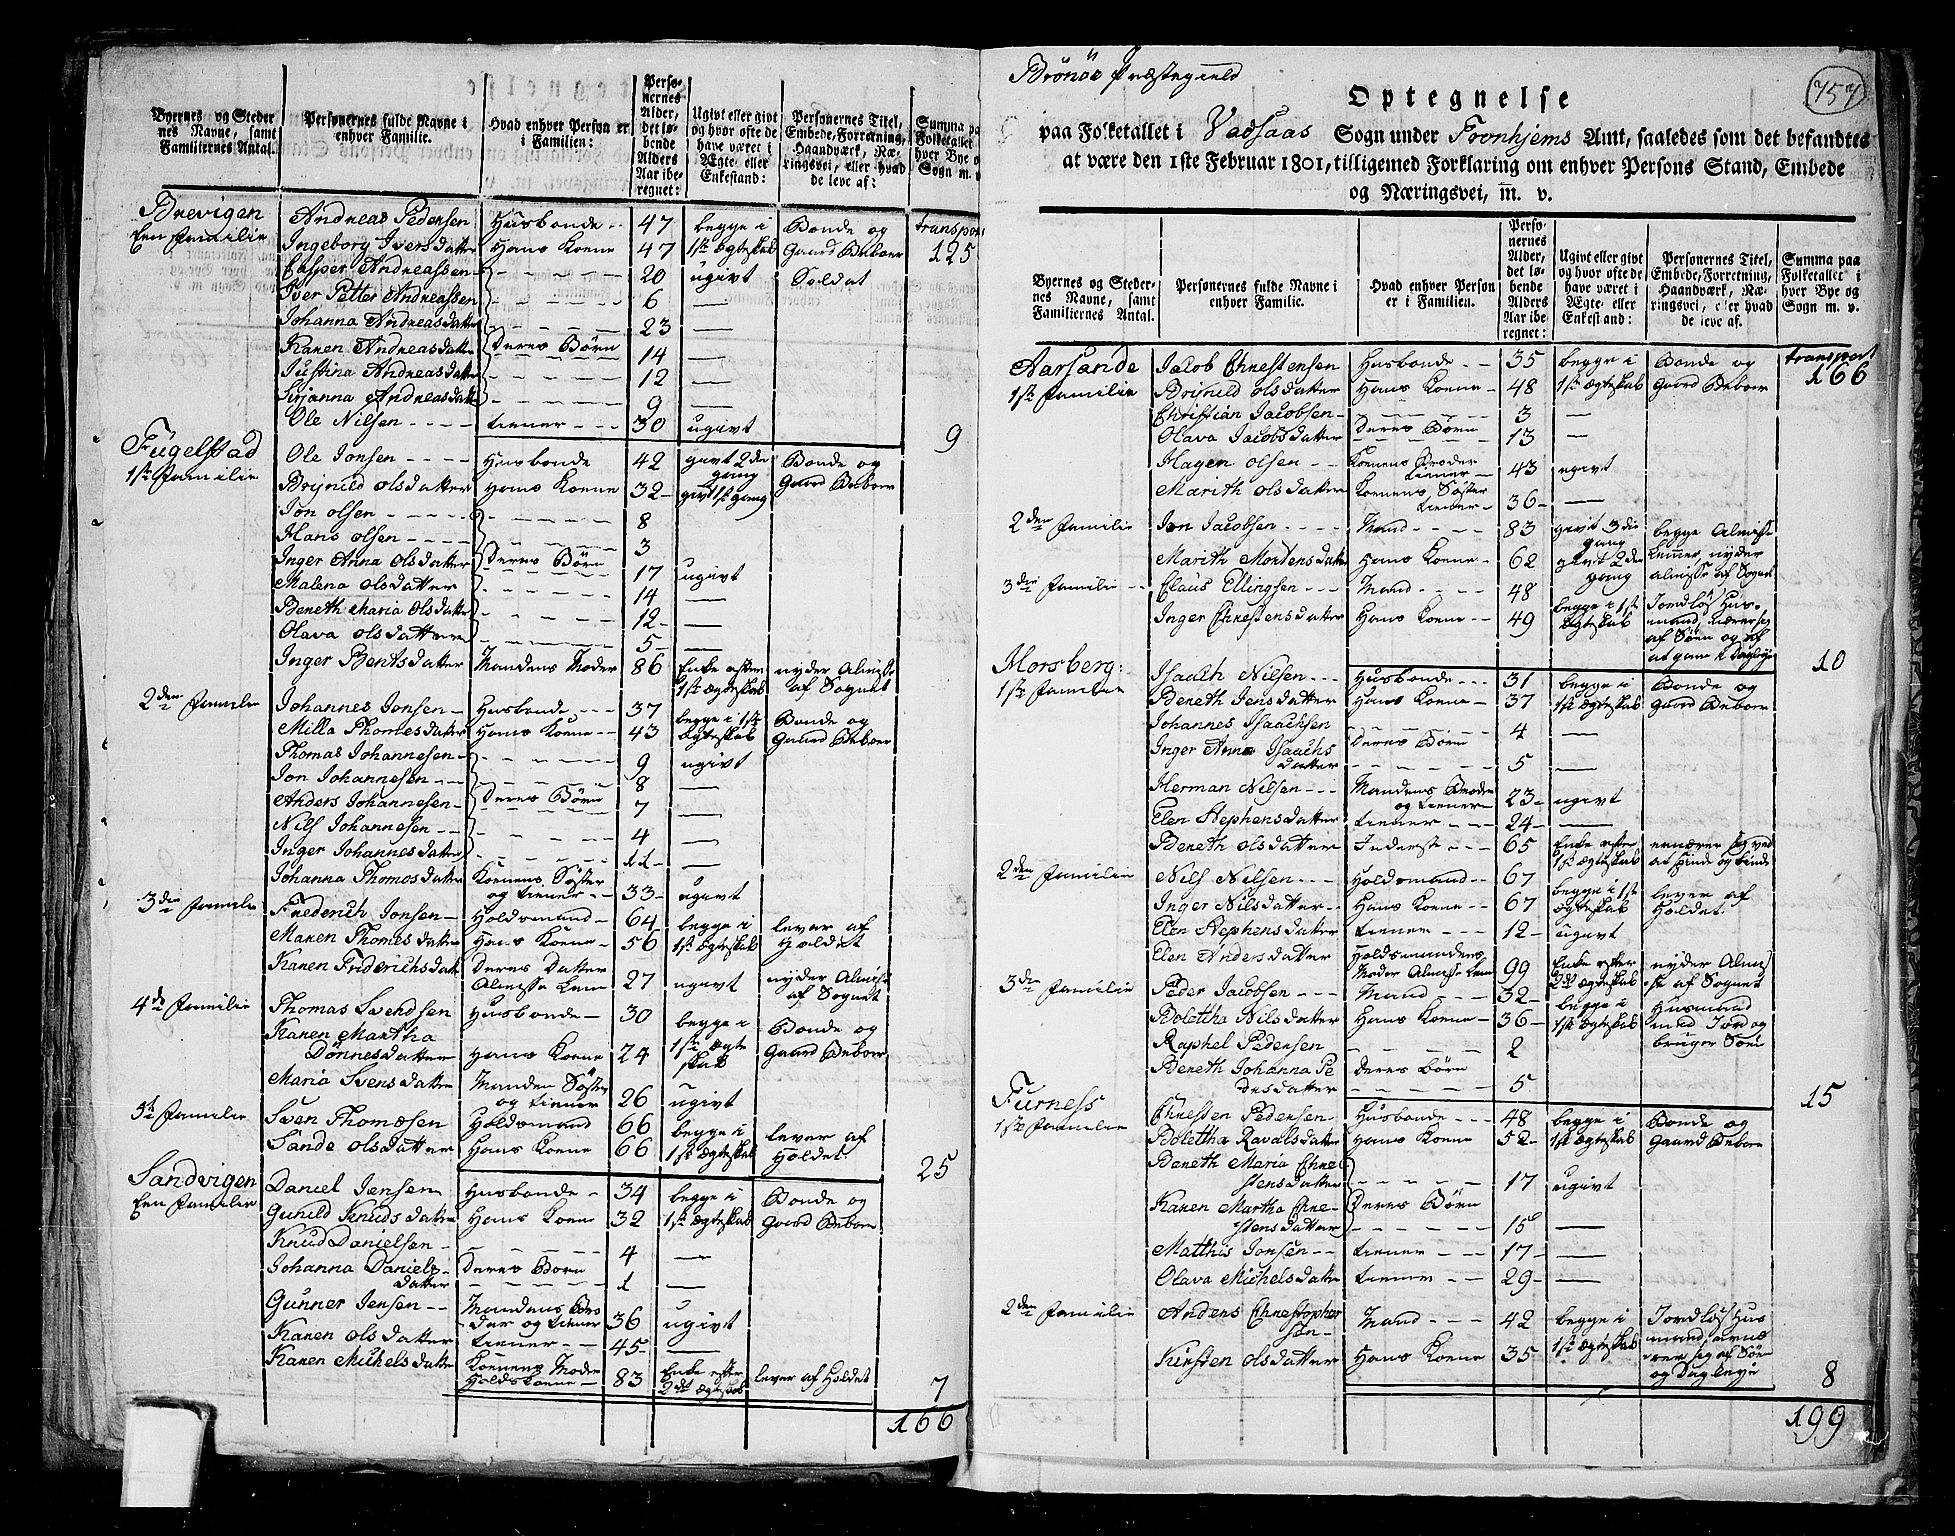 Byernes og Steder nes Navne, samt Familiernes Antal.
Personernes fulde Navne i enhver Familie.
Hvad enhver Person er i Familien:
Personernes Alder, det løbende Alders Aar iberegnet:
Ugivt eller givt og hvor ofte de have været i Ægte- eller Enkestand:
Personernes Titel, Embede, Forretning, Haandværk, Næringsvei, eller hvad de leve af:
Summa paa Folketallet hver Bye og Sogn m.
transport
Brevigen Andreas Pedersen Husbonde 47 begge i Bonde og
Een Familie Ingeborg Iversdatter Hans Koene 47 1ste Ægteskab Gaard Beboer 125
Casper Andreassen 20 ugivt Soldat
Iver Petter Andreassen 6 —
Johanna Andreasdatter 23 —
Karen Andreasdatter Deres Børn 14 —
Justina Andreasdatter 12 —
Sirjanna Andreasdatter 9 —
Ole Nilsen tiener 30 ugivt 9
Fugelstad Ole Jonsen Husbonde 42 givt 2den gang Bonde og
1ste Familie Brynild olsdatter Hans Koene 32 givt 1ste gang Gaard Beboer
Jon olsen 8
Hans olsen 3
Inger Anna olsdatter Deres Børn 17 ugivt
Malena olsdatter 14 —
Beneth Maria olsdatter 12 —
Olava olsdatter 5 —
Inger Bentsdatter Mandens Moder 86 Enke efter 1ste Ægteskab nyder Almisse af Sognet
2den Familie Johannes Jonsen Husbonde 37 begge i 1ste Bonde og
Milla Thomesdatter Hans Koene 43 Ægteskab Gaard Beboer
Thomas Johannesen 9 ugivt
Jon Johannesen 8 —
Anders Johannesen Deres Børn 7 —
Nils Johannesen 4 —
Inger Johannesdatter 11 —
Johanna Thomasdatter Koenens Søster og tiener 33 ugivt
3die Familie Frederich Jonsen Holdsmand 64 begge i lever af
Maren Thomesdatter Hans Koene 56 1ste Ægteskab Holdet
Karen Friderichsdatter Deres Datter Almisse Lem 27 ugivt nyder Almisse af Sognet
4de Familie Thomas Svendsen Husbonde 30 begge i Bonde og
Karen Martha Dønnesdatter Hans Koene 24 1ste Ægteskab Gaard Beboer
Maria Svensdatter Manden Søster og tiener 26 ugivt
5te Familie Sven Thomæsen Holdsmand 66 begge i lever af
Sande olsdatter Hans Koene 66 1ste Ægteskab Holdet 25
Sandvigen Daniel Jensen Husbonde 34 begge i Bonde og
Een Familie Gunild Knudsdatter Hans Koene 32 1ste Ægteskab Gaard Beboer
Knud Danielsen 4 —
Johanna Danielsdatter Deres Børn 1 —
Gunner Jensen Mandens Broder og tiener 36 ugivt
Karen olsdatter tiener 45 —
Karen Michelsdatter Koenens Moder Holdskoene 83 Enke efter 2det Ægteskab lever af Holdet 7
166
Brönöe Præstegield
757
Optegnelse
paa Folketallet i Vadsaas Sogn under Tronhjems Amt, saaledes som det befandtes
at være den 1ste Februar 1801, tilligemed Forklaring om enhver Persons Stand, Embede
og Næringsvei, m. v.
Byernes og Stedernes Navne, samt Familiernes Antal.
Personernes fulde Navne i enhver Familie.
Hvad enhver Person er i Familien.
Personernes Alder, det løbende Alders Aar iberegnet:
Ugivt eller givt og hvor ofte de have været i Ægte- eller Enkestand:
Personernes Titel, Embede, Forretning, Haandværk, Næringsvei, eller hvad de leve af.
Summa paa Folketallet i hver Bye og Sogn m. v.
transport
Aarsande Jacob Chrestensen Husbonde 35 begge i Bonde og 166
1ste Familie Brynild olsdatter Hans Koene 48 1ste Ægteskab Gaard Beboer
Christian Jacobsen 3 —
Olava Jacobsdatter Deres Børn 13 —
Hagen olsen Koenens Broder tiener 43 ugivt
Marith olsdatter Koenens Søster tiener 36 —
2den Familie Jon Jacobsen Mand 83 givt 3die gang begge Almisse
Marith Mortensdatter Hans Koene 62 givt 2den gang Lemer, nyder almisse af Sognet
3die Familie Claus Ellingsen Mand 48 begge i 1ste Jordløs Hus-
Inger Chrestensdatter Hans Koene 49 Ægteskab mand, nærer sig af Søen og af
10
Morsberg: Isaach Nilsen Husbonde 31 begge i Bonde og
1ste Familie Beneth Jensdatter Hans Koene 37 1ste Ægteskab Gaard Beboer
Johannes Isaachsen 4 —
Inger Anna Isaachsdatter Deres Børn 5 —
Herman Nilsen Mandens Broder og tiener 23 ugivt
Elen Stephensdatter tiener 24 —
Beneth olsdatter Inderst 65 Enke efter 1ste Ægteskab ernærer sig ved at spinde og binde
2den Familie Nils Nilsen Holdsmand 67 begge i 1ste lever af
Inger Nilsdatter Hans Koene 67 Ægteskab Holdet
Elen Stephensdatter tiener 12 ugivt
Elen Andersdatter Holdsmandens Moder Almisse Lem 99 Enke efter 2det Ægteskab nyder Almisse af Sognet
3die Familie Peder Jacobsen Mand 32 begge i Husmand
Bolettha Nilsdatter Hans Koene 36 1ste Ægteskab med Jord og bruger Søen
Raphel Pedersen 2
Beneth Johanna Pedersdatter deres børn 5 15
Furness Chresten Pedersen Husbonde 48 begge i Bonde og
1ste Familie Bolettha Ravalsdatter Hans Koene 52 1ste Ægteskab Gaard Beboer
Beneth Maria Chrestensdatter 17 ugivt
Karen Martha Chrestensdatter Deres Børn 15 —
Matthis Jonsen tiener 17 —
Olava Michelsdatter tiener 29 —
2den Familie Anders Chrestophersen Mand 42 begge i Jordløs Hus
Kirsten olsdatter Hans Koene 35 1ste Ægteskab mand, ernærer sig af Søen og Dagleye 8
199